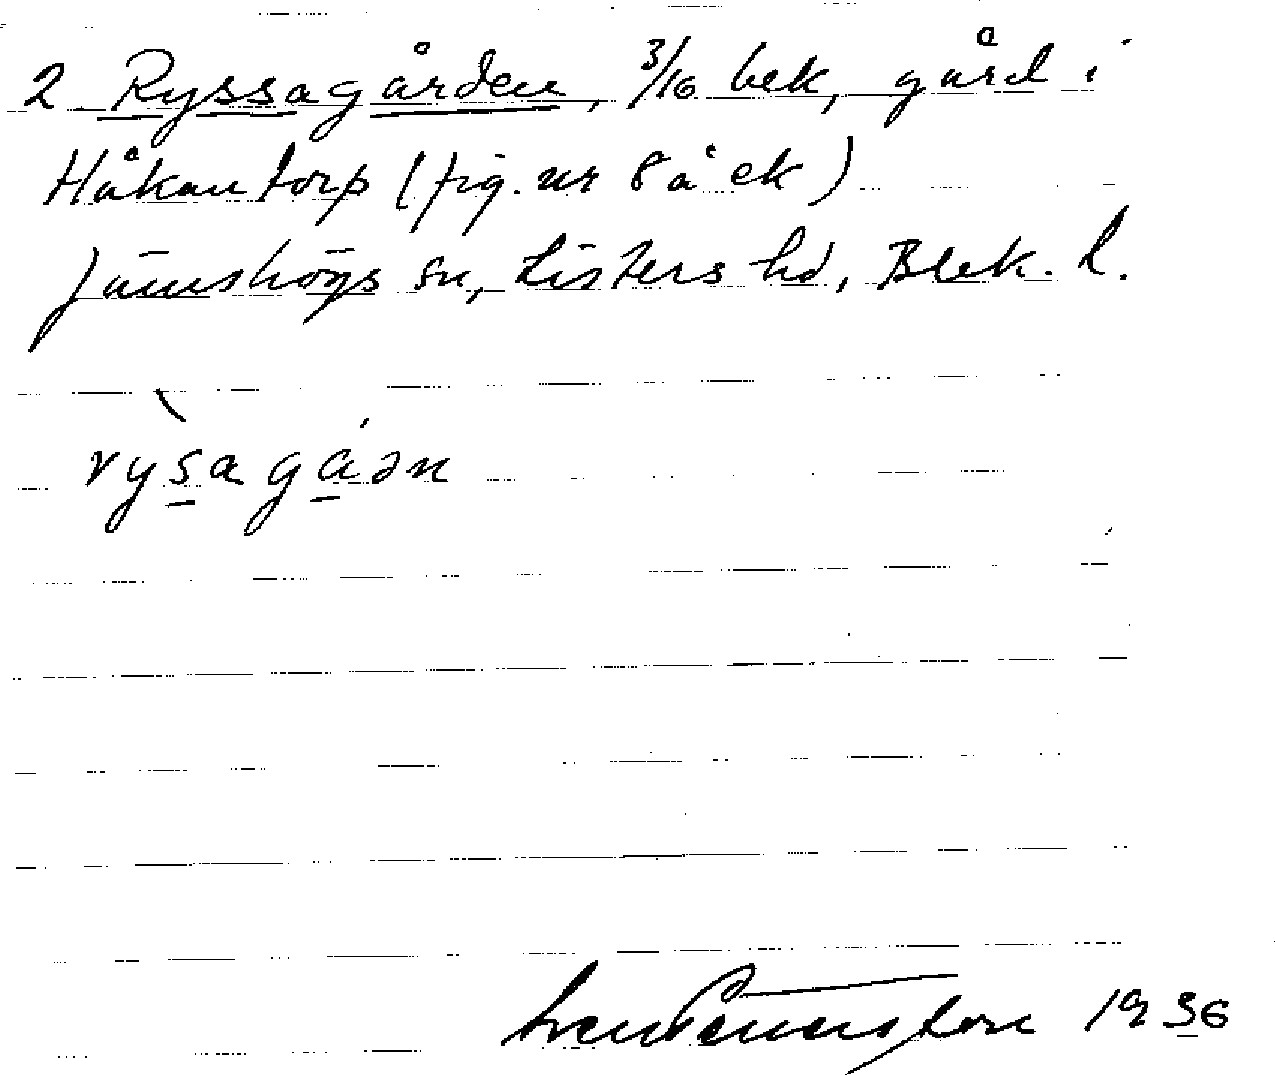 2 Ryssagården, 3/16 bek, gård i
Håkantorp (fig. nr 8 å ek)
Jämshögs sn, Listers hd, Blek. l.
rysagåən
1936